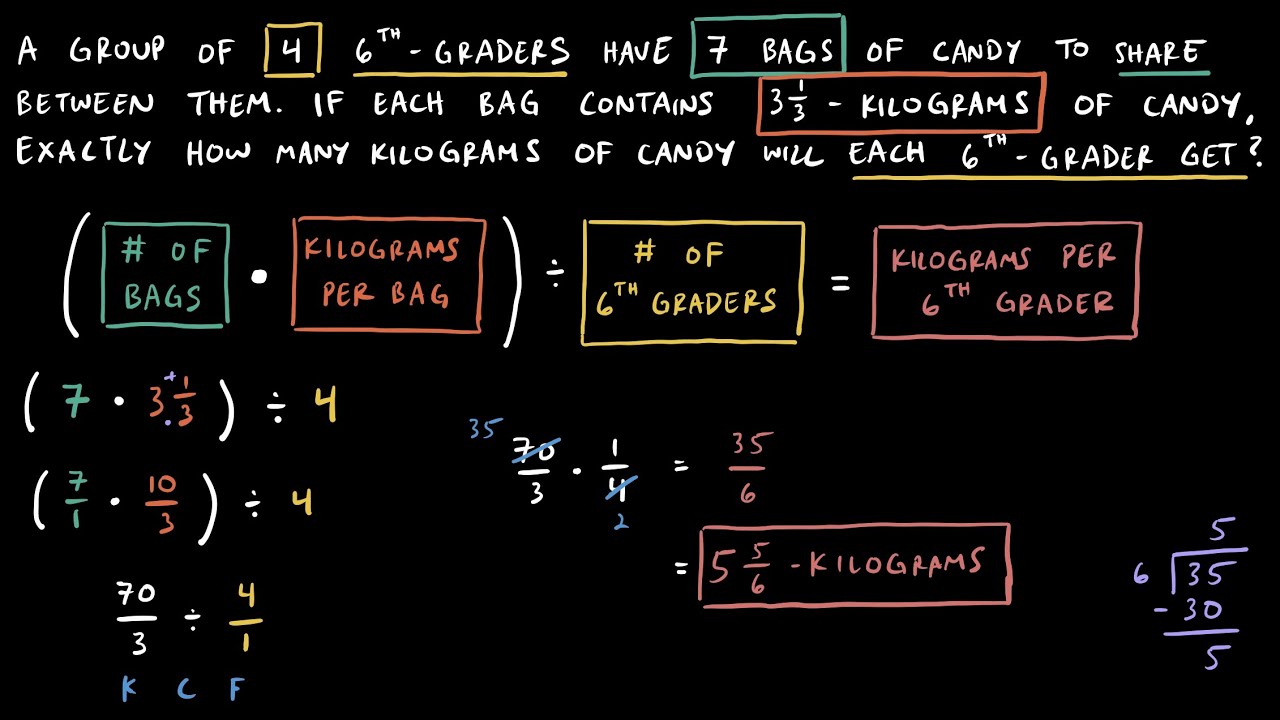 A GROUP OF 4 6TH-GRADERS HAVE 7 BAGS OF CANDY TO SHARE
BETWEEN THEM. IF EACH BAG CONTAINS 3 1/3 - KILOGRAMS OF CANDY,
EXACTLY HOW MANY KILOGRAMS OF CANDY WILL EACH 6TH-GRADER GET?
( # OF BAGS · KILOGRAMS PER BAG ) ÷ # OF 6TH GRADERS = KILOGRAMS PER 6TH GRADER
( 7 · 3 + 1/3 ) ÷ 4
( 7/1 · 10/3 ) ÷ 4
70/3 ÷ 4/1
K C F
35 70/3 · 1/4 2 = 35/6
= 5 5/6 - KILOGRAMS
5
6 35
- 30
5